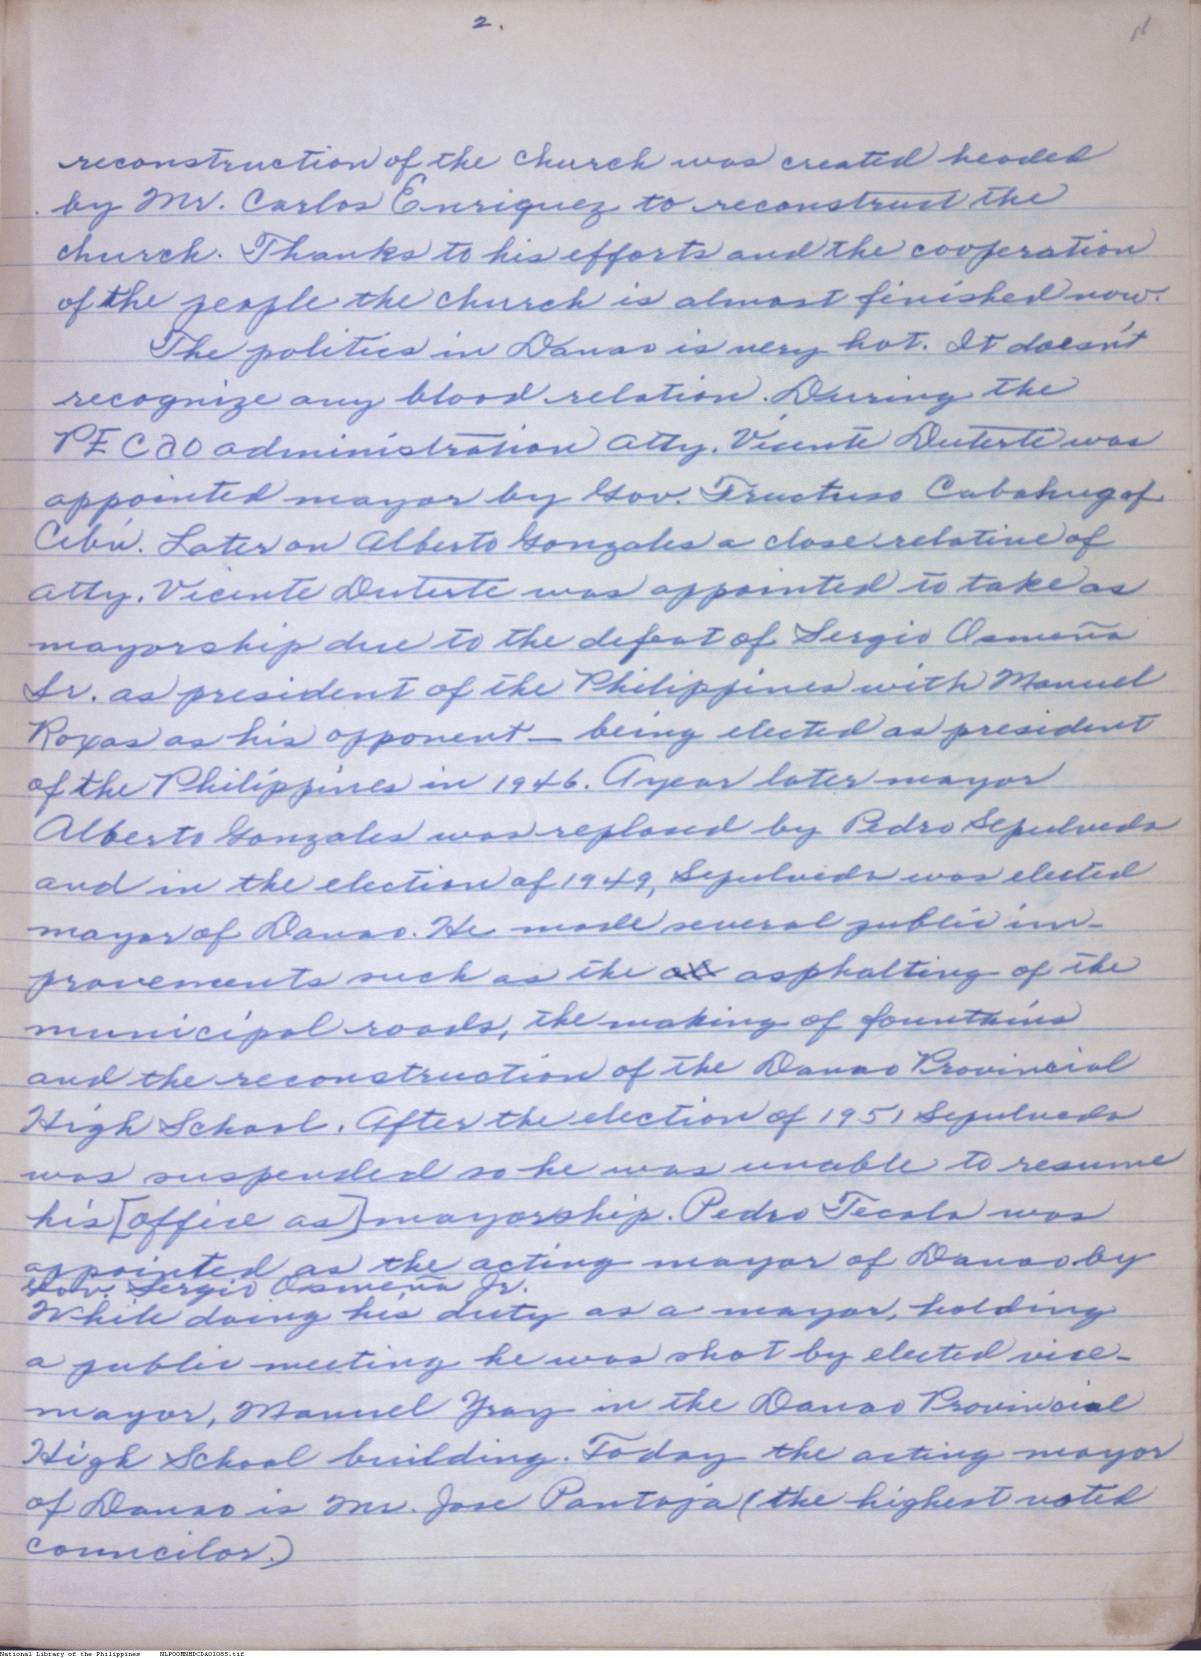 2.
reconstruction of the church was created headed
by Mr. Carlos Enriquez to reconstruct the
church. Thanks to his efforts and the cooperation
of the people the church is almost finished now.
The politics in Danao is very hot. It doesn't
recognize any blood relation. During the
PECAO administration Atty. Vicente Duterte was
appointed mayor by Gov. Fructuso Cabahug of
Cebú. Later on Alberto Gonzales a close relative of
Atty. Vicente Duterte was appointed to take as
mayorship due to the defeat of Sergio Osmeña
Sr. as president of the Philippines with Manuel
Roxas as his opponent — being elected as president
of the Philippines in 1946. A year later mayor
Alberto Gonzales was replaced by Pedro Sepulveda
and in the election of 1949, Sepulveda was elected
mayor of Danao. He made several public im-
provements such as the asphalting of the
municipal roads, the making of fountains
and the reconstruction of the Danao Provincial
High School. After the election of 1951 Sepulveda
was suspended so he was unable to resume
his [office as] mayorship. Pedro Tecala was
appointed as the acting mayor of Danao by
Gov. Sergio Osmeña Jr.
While doing his duty as a mayor, holding
a public meeting he was shot by elected vice-
mayor, Manuel Yray in the Danao Provincial
High School building. Today the acting mayor
of Danao is Mr. Jose Pantoja (the highest voted
councilor.)
National Library of the Philippines NLPOOMNHDCDA01085.tif